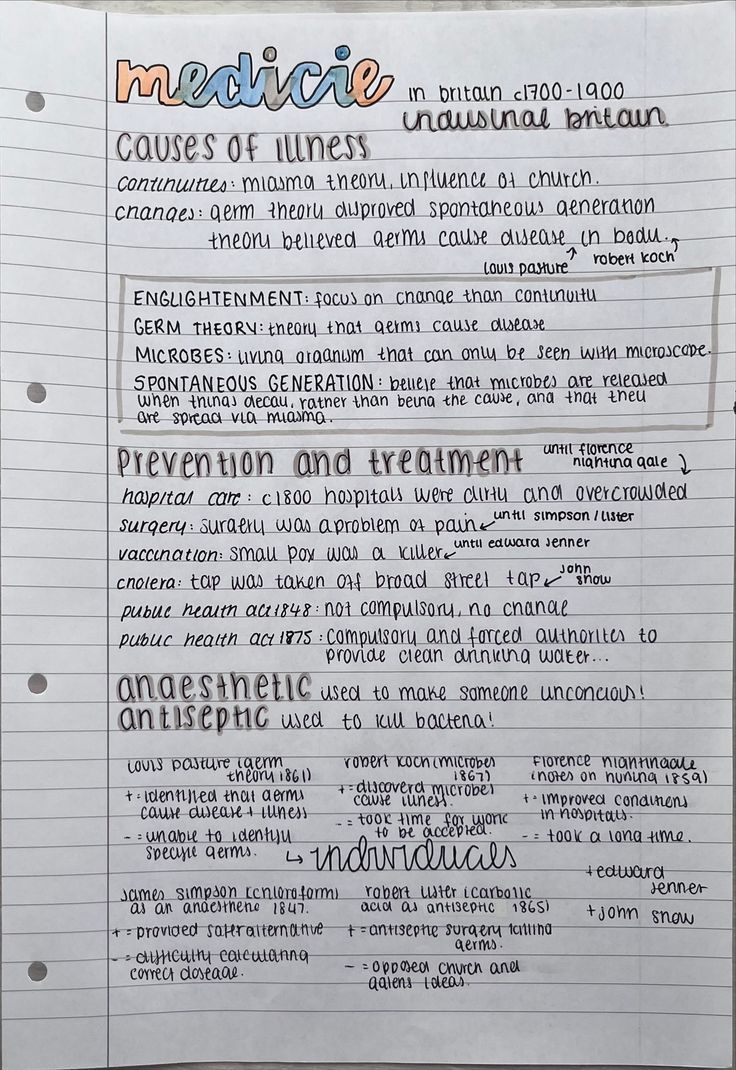 medicie in britain c1700-1900
industrial britain
causes of illness
continuities: miasma theory, influence of church.
changes: germ theory disproved spontaneous generation
theory believed germs cause disease in body.
louis pasture robert koch
ENGLIGHTENMENT: focus on change than continuity
GERM THEORY: theory that germs cause disease
MICROBES: living organism that can only be seen with microscope.
SPONTANEOUS GENERATION: believe that microbes are released
when things decay, rather than being the cause, and that they
are spread via miasma.
prevention and treatment until florence
nightingale
hospital care: c1800 hospitals were dirty and overcrowded
surgery: surgery was a problem of pain until simpson/lister
vaccination: small pox was a killer until edward jenner
cholera: tap was taken off broad street tap john
snow
public health act 1848: not compulsory, no change
public health act 1875: compulsory and forced authorites to
provide clean drinking water...
anaesthetic used to make someone unconcious!
antiseptic used to kill bacteria!
louis pasture (germ
theory 1861)
+ = identified that germs
cause disease + illness
- = unable to identify
specific germs.
robert koch (microbes
1867)
+ = discoverd microbes
cause illness.
- = took time for work
to be accepted.
florence nightingale
(notes on nursing 1859)
+ = improved conditions
in hospitals.
- = took a long time.
individuals
james simpson (chloroform)
as an anaesthetic 1847.
+ = provided safer alternative
- = difficulty calculating
correct doseage.
robert lister (carbolic
acid as antiseptic 1865)
+ = antiseptic surgery killing
germs.
- = opposed church and
galens ideas.
+ edward
jenner
+ john snow